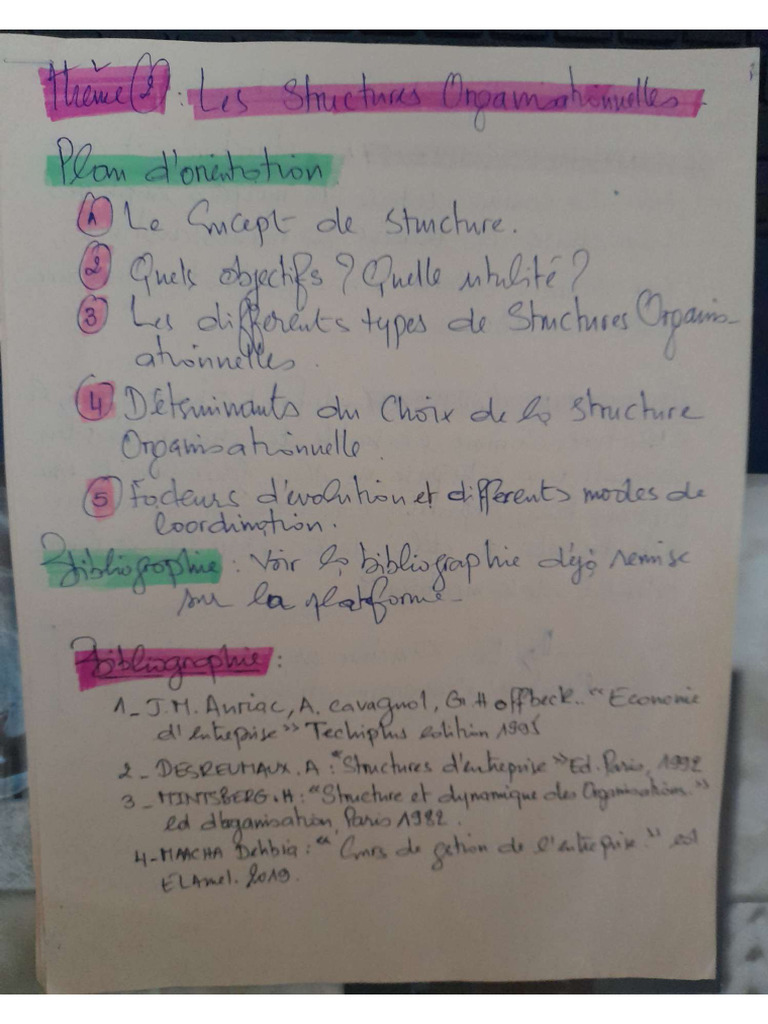 Thème (2) : Les Structures Organisationnelles
Plan d'orientation
1 Le Concept de structure.
2 Quels objectifs ? Quelle utilité ?
3 Les différents types de Structures Organis-
ationnelles.
4 Déterminants du Choix de la structure
Organisationnelle.
5 Facteurs d'évolution et différents modes de
Coordination.
Bibliographie : Voir la bibliographie déjà remise
sur la plateforme -
Bibliographie :
1- J.M. Auriac, A. Cavagnol, G. Hoffbeck.. "Economie
d'entreprise" Techiplus edition 1995
2- DESREUMAUX. A : "Structures d'entreprise" Ed. Paris, 1992
3- MINTSBERG. H : "Structure et dynamique des Organisations."
ed d'organisation, Paris 1982.
4- MAACHA Dehbia : "Cours de gestion de l'entreprise." edt
ELAmel. 2019.